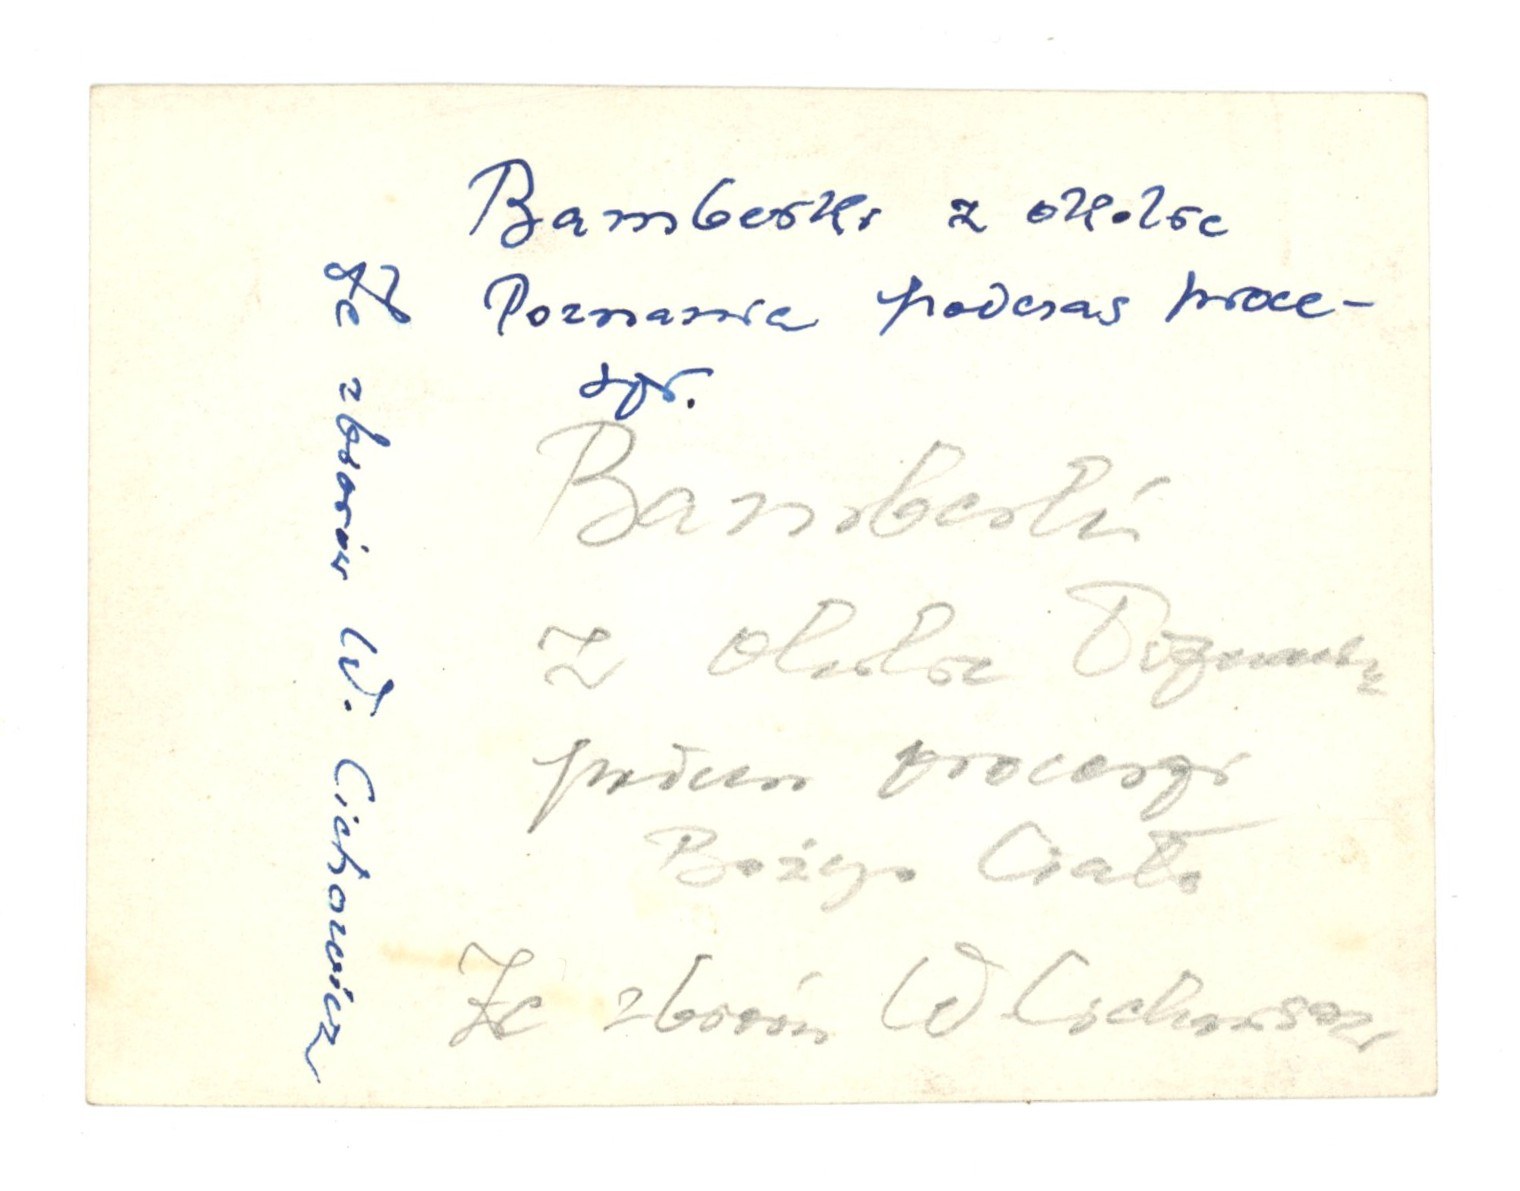 Bamberki z okolic
Poznania podczas proce-
sji.
Ze zbiorów W. Cichowicz
Bamberki
z okolic Poznania
podczas procesji
Bożego Ciała
Ze zbiorów W Cichowicz